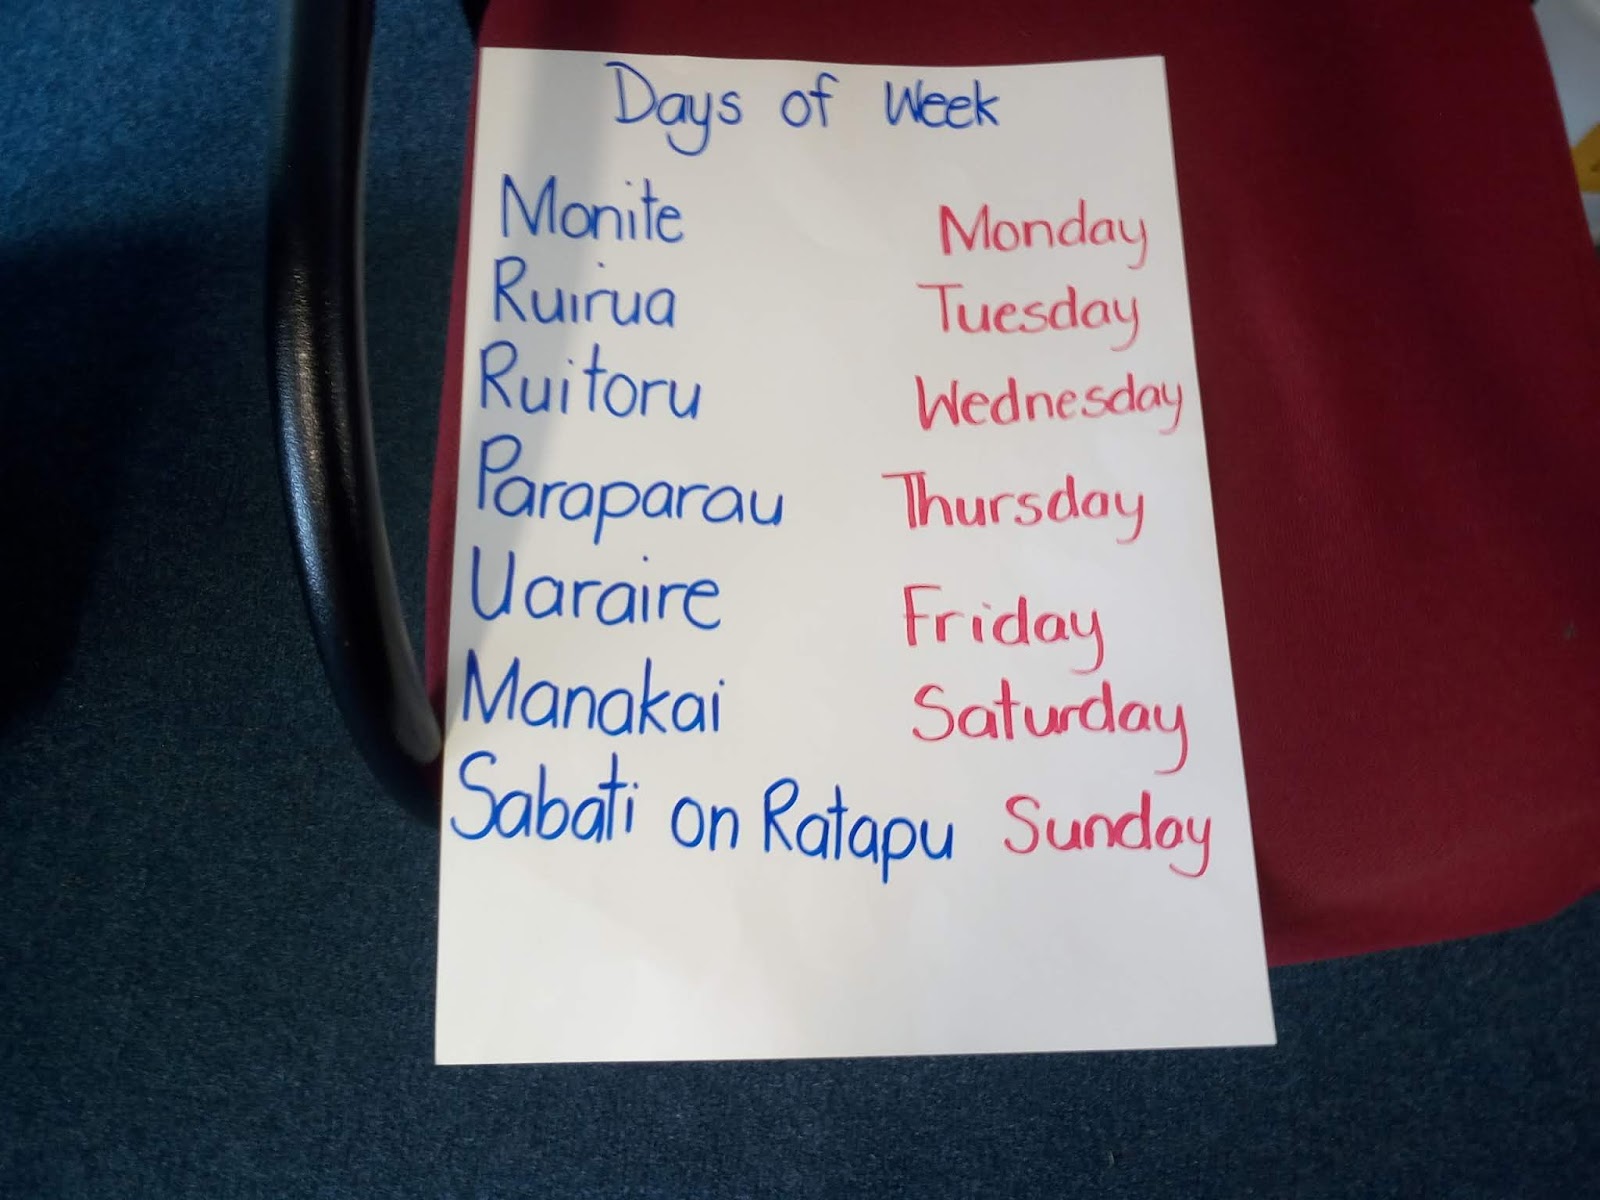 Days of Week
Monite Monday
Ruirua Tuesday
Ruitoru Wednesday
Paraparau Thursday
Uaraire Friday
Manakai Saturday
Sabati on Ratapu Sunday